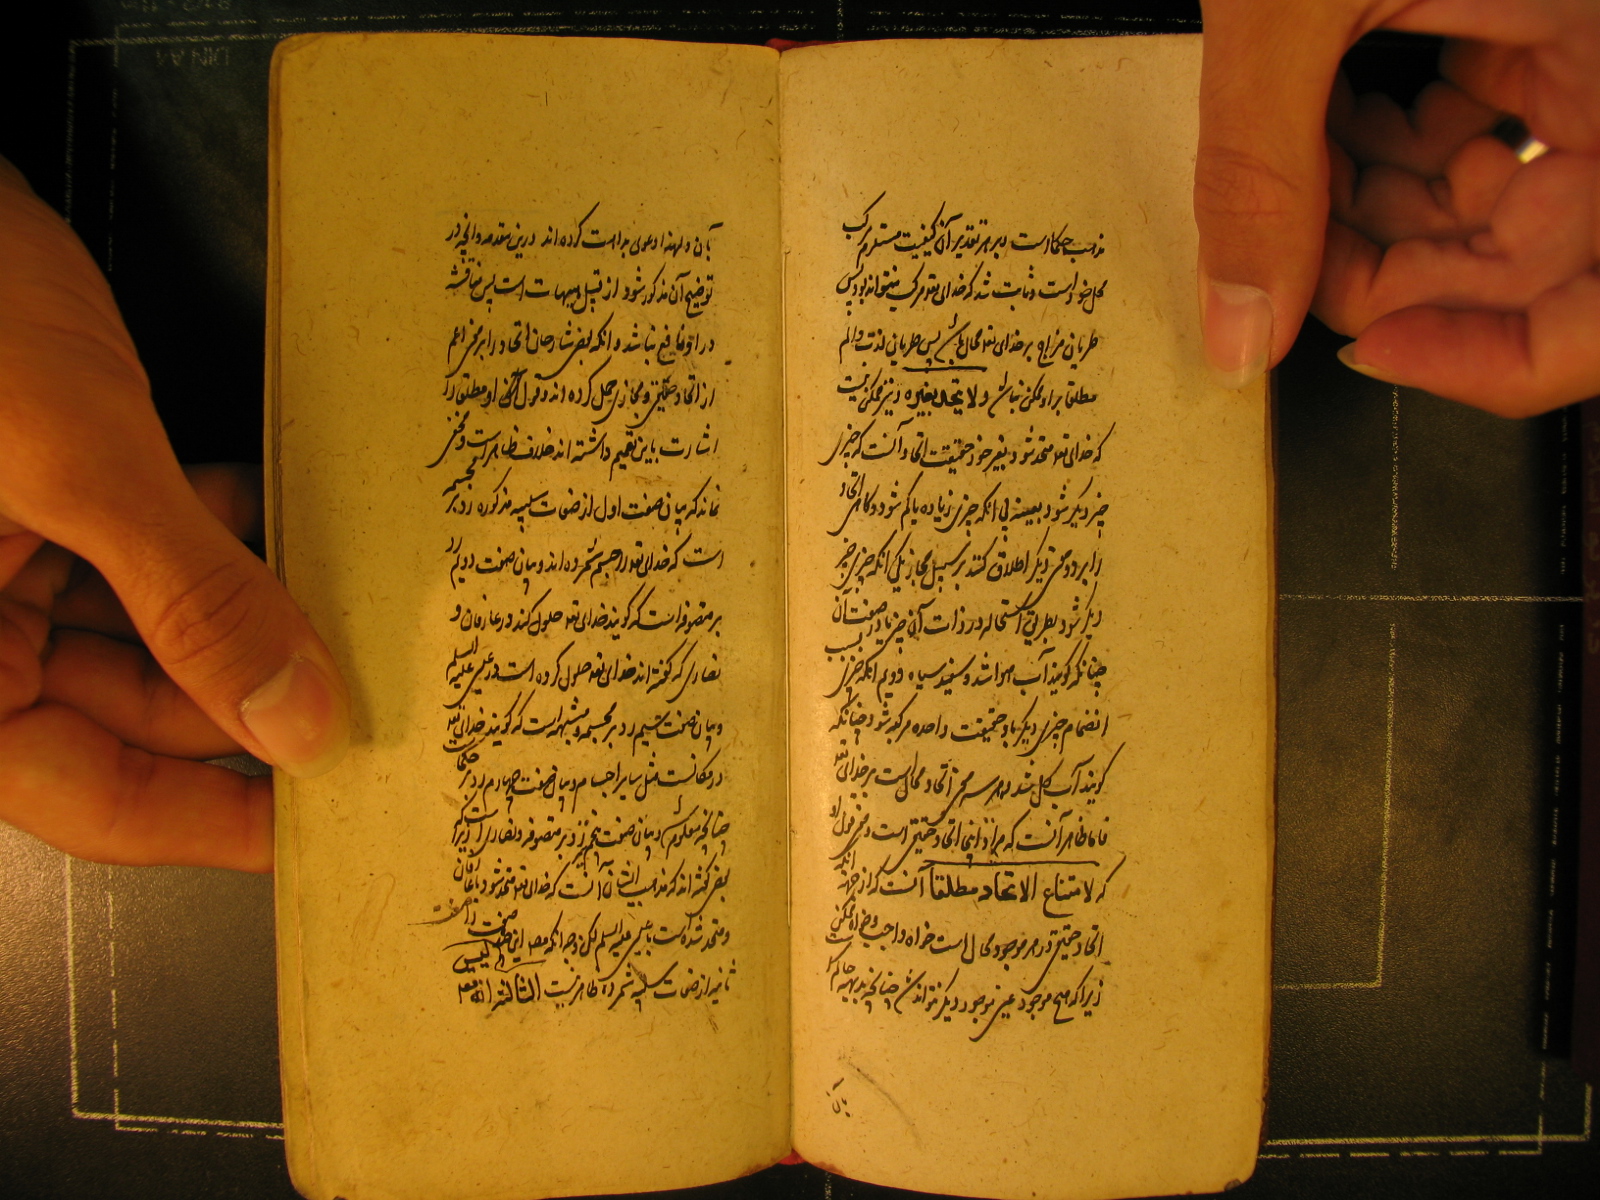 مذهب حکما است و بر هر تقدیر آن کیفیت مستلزم ترکب
محل خود است و ثابت شد که خدای تعه مرکب نمیتواند بود پس
طریان مزاج بر خدای تعه محال باشد پس طریان لذت و الم
مطلقا بر او ممکن نباشد ولا یتحد بغیره و نیز ممکن نیست
که خدای تعه متحد شود بغیر خود حقیقت اتحاد آنست که چیزی
چیز دیگر شود بعینه بی انکه چیزی زیاده یا کم شود و کاهی اتحاد
را بر دو معنی دیگر اطلاق کنند بر سبیل مجاز یکی انکه چیزی چیز
دیگر شود بطریق استحاله در ذات آن چیز یا در صفت آن
چنانکه کویند آب هوا شد و سفید سیاه دویم انکه چیزی بسبب
انضمام چیزی دیگر باو حقیقت واحده مرکبه شود چنانکه
کویند آب کل شد و هر سه معنی اتحاد محال است بر خدای تعه
فاما ظاهر آنست که مراد اینجا اتحاد حقیقی است و معنی قول او
که لامتناع الاتحاد مطلقا آنست که از جهة انکه
اتحاد حقیقی در هر موجود محال است خواه واجب و خواه ممکن
زیرا که هیچ موجود عین موجود دیگر نتواند شد چنانچه بدیهیه حاکم است
بآن
بآن و لهذا دعوی بداهت کرده اند درین مقدمه و انچه در
توضیح آن مذکور شود از قبیل تنبیهات است پس مناقشه
در ان نافع نباشد و انکه بعض شارحان اتحاد را بر معنی اعم
از اتحاد حقیقی و مجازی حمل کرده اند و قول او مطلقا را
اشارت باین تعمیم داشته اند خلاف ظاهر است و مخفی
نماند که بیان صفت اول از صفات سلبیه مذکوره رد بر مجسمه
است که خدای تعه را جسم شمرده اند و بیان صفت دویم رد
بر متصوفه است که کویند خدای تعه حلول کند در عارفان و
نصاری که کفته اند خدای تعه حلول کرده است در عیسی علیه السلم
و بیان صفت سیم رد بر مجسمه و مشبهه است که کویند خدای تعه
در مکانست مثل سایر اجسام و بیان صفت چهارم رد بر حکما
چنانچه معلوم شد و بیان صفت پنجم نیز رد بر متصوفه و نصاری است زیرا که
بعض کفته اند که مذهب ایشان آنست که خدای تعه متحد شود با عارفان
و متحد شده است با عیسی علیه السلم لکن وجه انکه مصه این صفت را
ثانیه از صفات سلبیه شمرده ظاهر نیست الثالثة انه تعه لیس